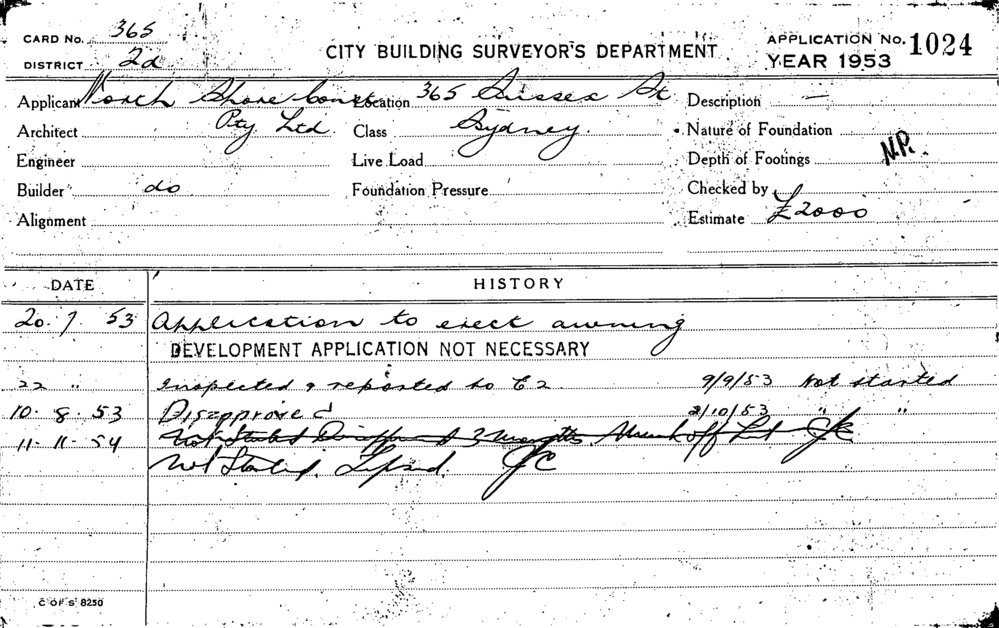 CARD NO. 365
DISTRICT 2d
CITY BUILDING SURVEYOR'S DEPARTMENT
APPLICATION NO. 1024
YEAR 1953
Applicant North Shore Const Pty Ltd
Location 365 Sussex St Sydney.
Description —
Architect
Class
Nature of Foundation
Engineer
Live Load
Depth of Footings
Builder do
Foundation Pressure
Checked by
Alignment
Estimate £2000
DATE HISTORY
20. 7. 53 Application to erect awning
DEVELOPMENT APPLICATION NOT NECESSARY
22 " Inspected & reported to E2. 9/9/53 Not started
10. 8. 53 Disapproved 2/10/53 " "
11. 11. 54 Not Started 3 months off
Not Started. Lapsed. JC
C OF S 8250